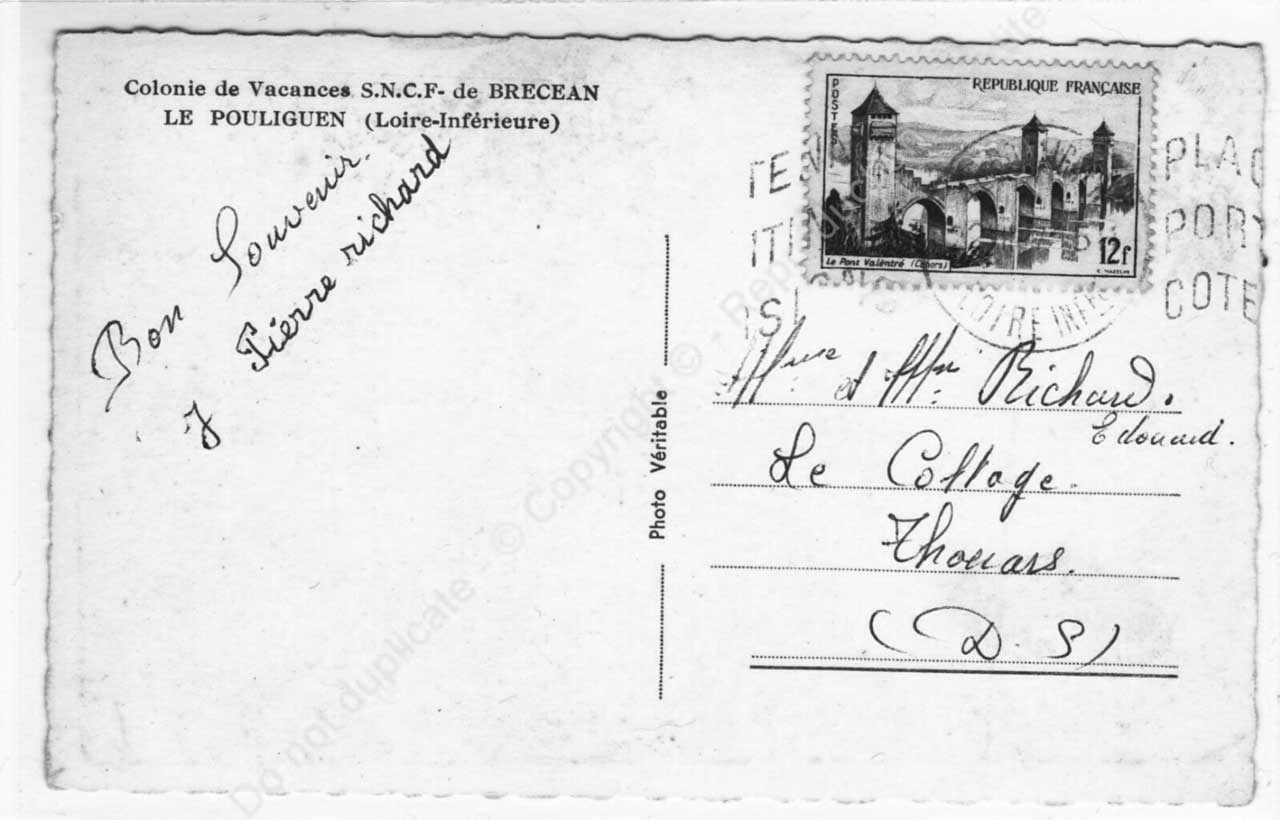 Colonie de Vacances S.N.C.F- de BRECEAN
LE POULIGUEN (Loire-Inférieure)
Bon Souvenir.
J Pierre richard
Photo Véritable
POSTES
REPUBLIQUE FRANÇAISE
Le Pont Valentré (Cahors)
12f
PLAG
PORT
COTE
LOIRE INFRE
Mme et Mr. Richard.
Edouard.
Le Cottage.
Thouars.
(D.S)
Do not duplicate - © Copyright © -